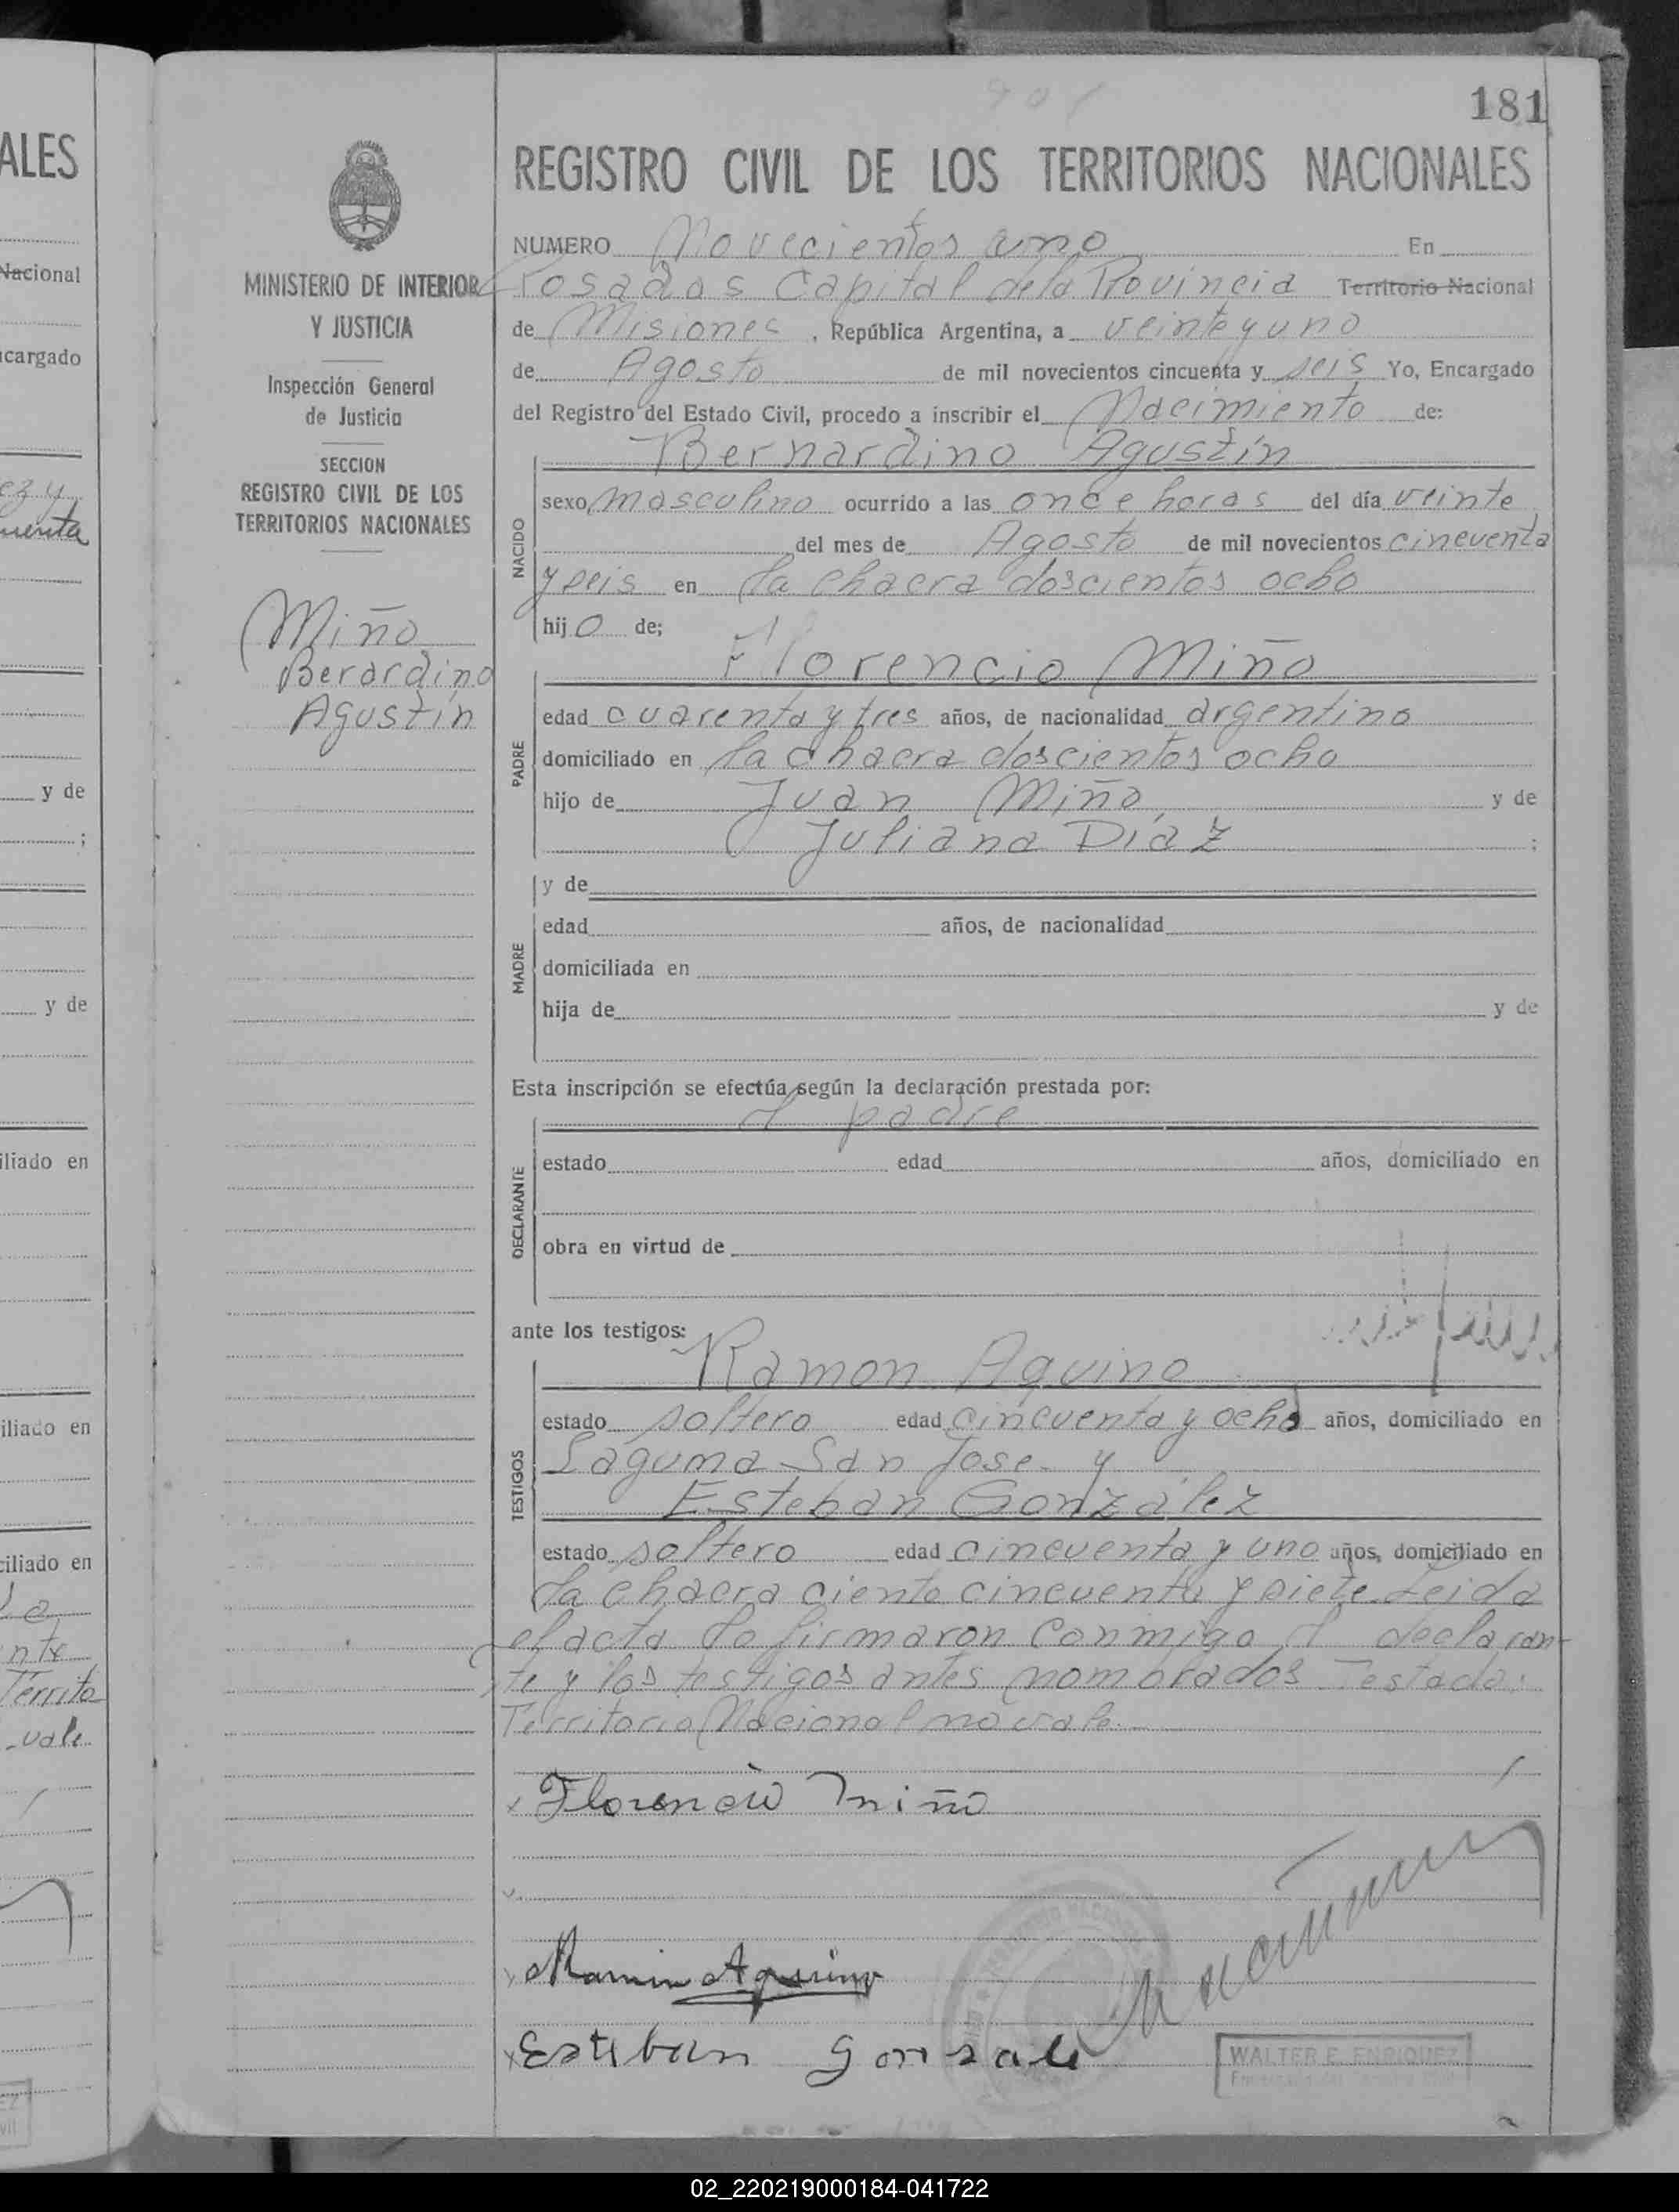 181
901
REGISTRO CIVIL DE LOS TERRITORIOS NACIONALES
NUMERO Novecientos uno En
Posadas Capital de la Provincia Territorio Nacional
de Misiones, República Argentina, a veinte y uno
de Agosto de mil novecientos cincuenta y seis Yo, Encargado
del Registro del Estado Civil, procedo a inscribir el Nacimiento de:
Bernardino Agustín
NACIDO
sexo masculino ocurrido a las once horas del día veinte
del mes de Agosto de mil novecientos cincuenta
y seis en la chacra doscientos ocho
hijo de;
Florencio Miño
PADRE
edad cuarenta y tres años, de nacionalidad argentino
domiciliado en la chacra doscientos ocho
hijo de Juan Miño y de
Juliana Díaz ;
y de
MADRE
edad años, de nacionalidad
domiciliada en
hija de y de
Esta inscripción se efectúa según la declaración prestada por:
el padre
DECLARANTE
estado edad años, domiciliado en
obra en virtud de
ante los testigos:
Ramon Aquino
TESTIGOS
estado soltero edad cincuenta y ocho años, domiciliado en
Laguna San Jose y
Esteban González
estado soltero edad cincuenta y uno años, domiciliado en
la chacra ciento cincuenta y siete. Leida
el acta la firmaron conmigo el declaran-
te y los testigos antes nombrados Testado:
Territorio Nacional no vale.
Florencio Miño
Ramon Aquino
Esteban Gonsale
WALTER E. ENRIQUEZ
MINISTERIO DE INTERIOR
Y JUSTICIA
Inspección General
de Justicia
SECCION
REGISTRO CIVIL DE LOS
TERRITORIOS NACIONALES
Miño
Berardino
Agustín
ALES
Nacional
cargado
ez y
cuenta
y de
;
y de
iliado en
iliado en
ciliado en
nte
Territo
vale
02_220219000184-041722